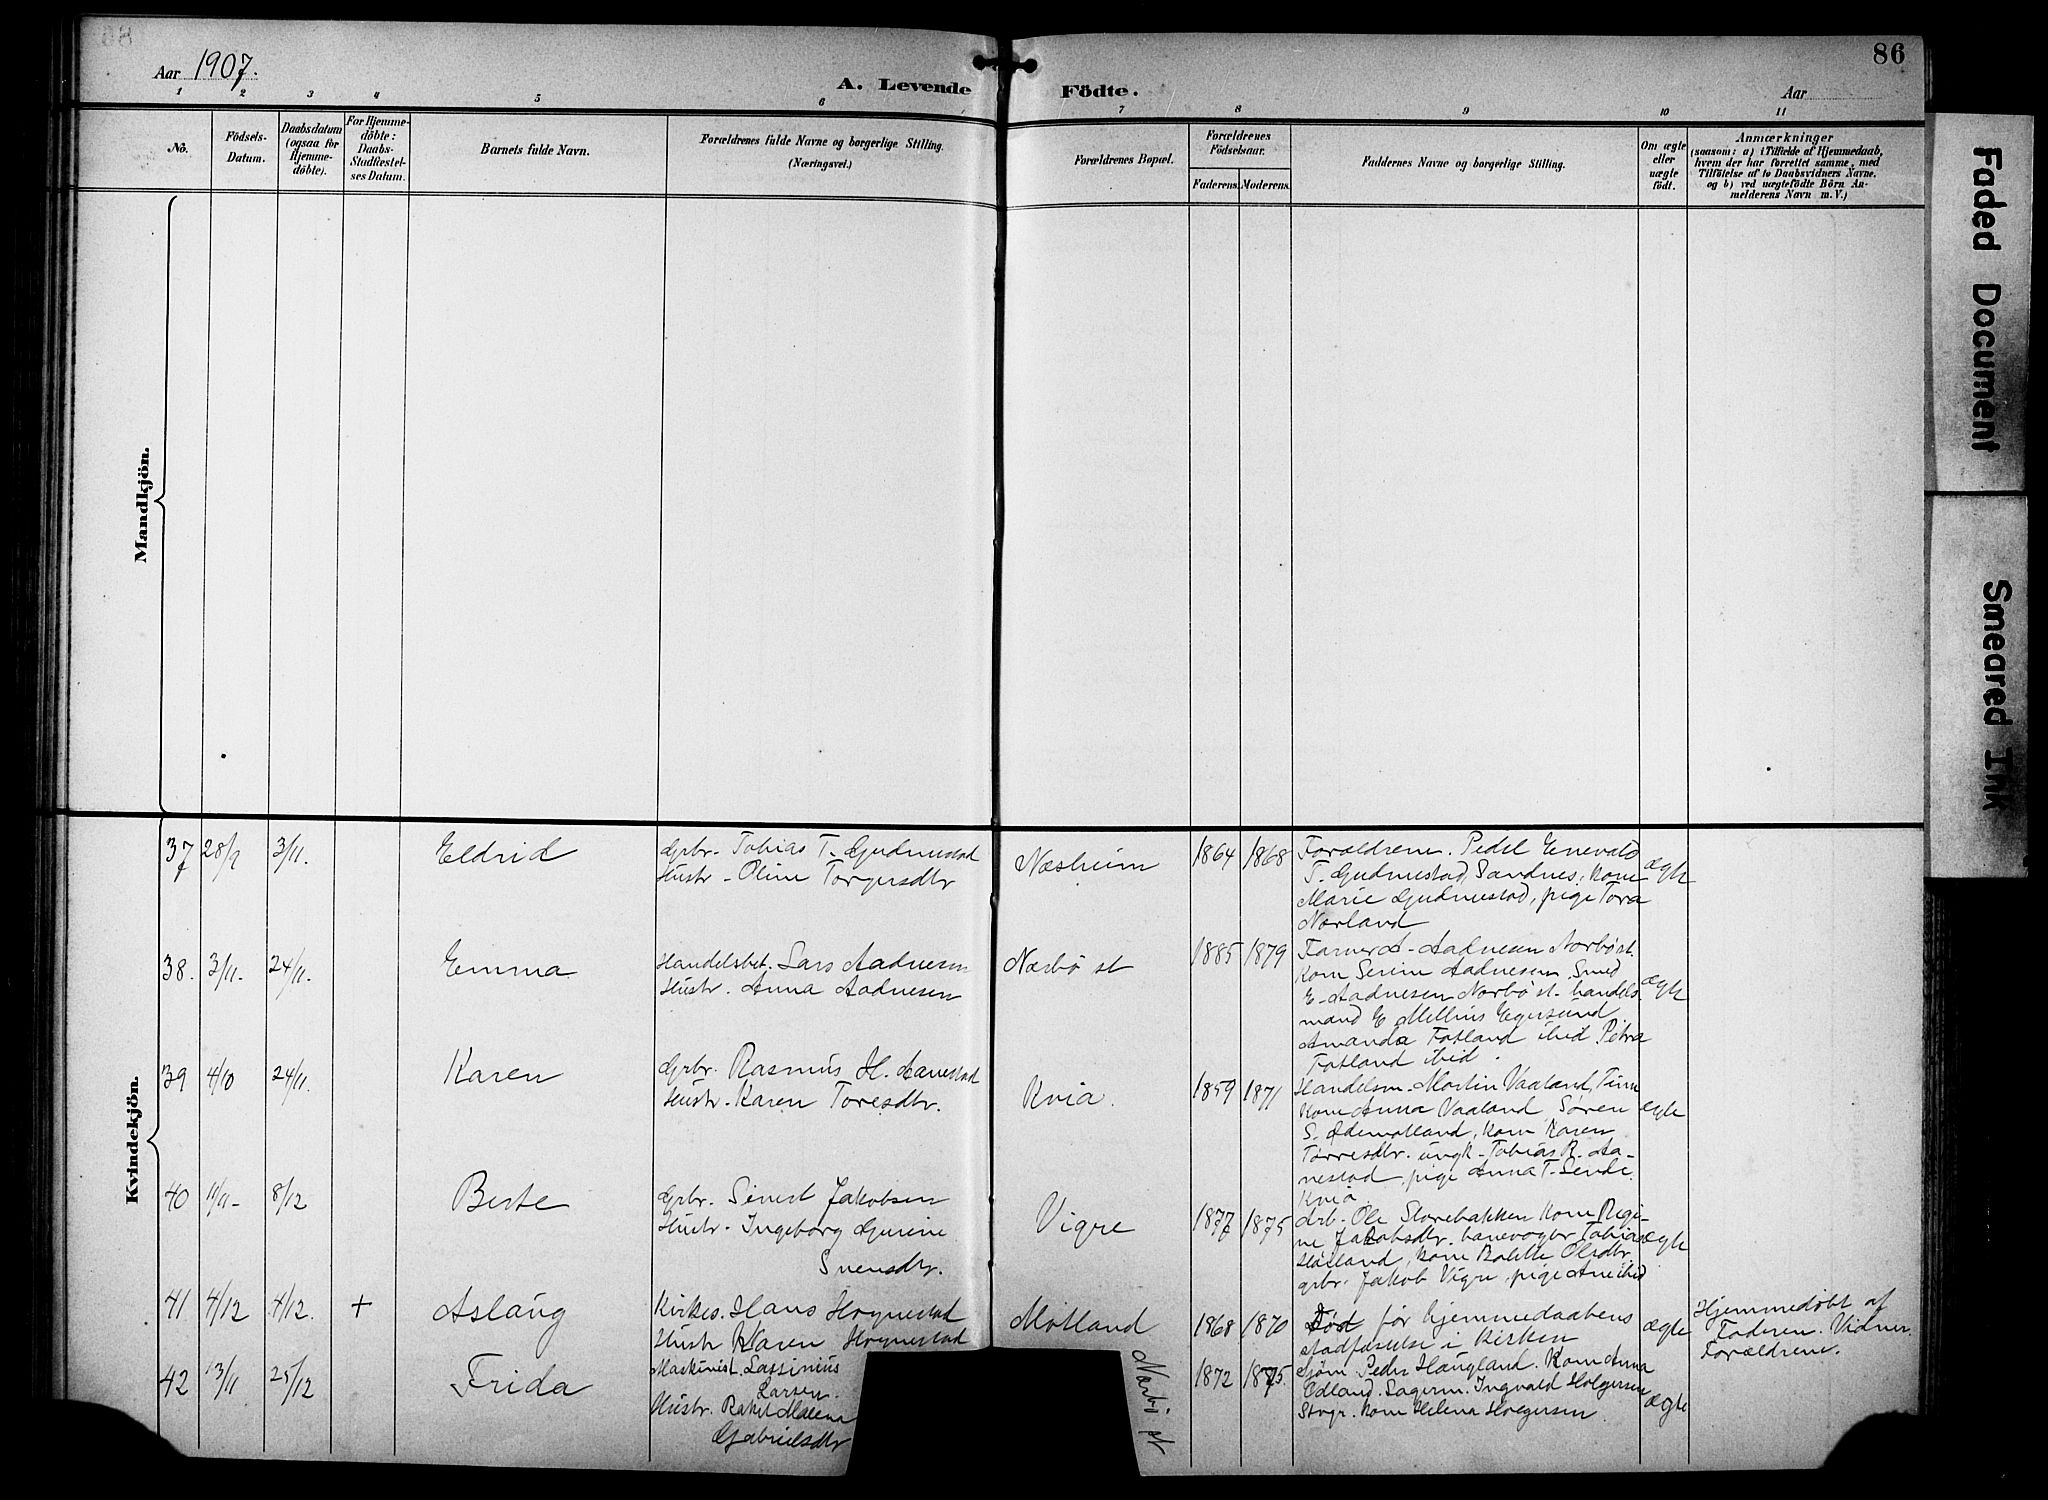 86
Aar 1907.
A. Levende Födte.
Aar
1 2 3 4 5 6 7 8 9 10 11
No.
Födsels-
Datum.
Daabsdatum
(ogsaa for
Hjemme-
döbte).
For Hjemme-
döbte:
Daabs-
Stadfæstel-
ses Datum.
Barnets fulde Navn.
Forældrenes fulde Navne og borgerlige Stilling.
(Næringsvei.)
Forældrenes Bopæl.
Forældrenes
Födselsaar.
Faderens. Moderens.
Faddernes Navne og borgerlige Stilling.
Om ægte
eller
uægte
födt.
Anmærkninger
(saasom: a) i Tilfælde af Hjemmedaab,
hvem der har forrettet samme, med
Tilföielse af to Daabsvidners Navne,
og b) ved uægtefödte Börn An-
melderens Navn m. V.)
Mandkjön.
Kvindekjön.
37 28/9 3/11. Eldrid
Grbr. Tobias T. Gudmestad
Hustr. Oline Torgersdtr
Næsheim
1864 1868
Forældrene. Pedel Enevald
T. Gudmestad, Sandnes, kone
Marie Gudmestad, pige Tora
Norland
ægte
38. 3/11. 24/11. Emma
Handelsbet. Lars Aadnesen
Hustr. Anna Aadnesen
Nærbö st
1885 1879
Aadnesen Nærbö st.
Kone Serine Aadnesen. Smed
E. Aadnesen Nærbö st. handels
mand E Mellius Egersund
Amanda Fotland ibid Petra
Fotland ibid.
ægte
39 4/10 24/11. Karen
Grbr. Rasmus H. Aanestad
Hustr. Karen Toresdtr.
Kvia.
1859 1871
Handelsm. Martin Vaaland, Time
Kone Anna Vaaland Sören
S. Ödemotland, kone Karen
Torresdtr. ungk. Tobias R. Aa-
nestad, pige Anna T. Sende
Kvia
egte
40 11/11 8/12 Berte
Grbr. Sivert Jakobsen
Hustr. Ingeborg Gurine
Svensdtr.
Vigre
1877 1875
Arb. Ole Storebakken Kone Regi-
ne Jakobsdtr. banevogter Tobias
Höiland, kone Bolette Olsdtr
grbr. Jakob Vigre, pige Ane ibid
ægte
41 4/12 4/12. + Aslaug
Kirkes. Hans Hognestad
Hustr Karen Hognestad
Motland
1868 1870
Död för hjemmedaabens
stadfæstelse i Kirken
ægte
Hjemmedöbt af
Faderen. Vidner
Forældrene.
42 13/11 25/12 Frida
Maskinist Lassinius
Larsen.
Hustr. Rakel Malena
Gabrielsdtr
Nærbö st
1872 1875.
Sjöm. Peder Haugland. Kone Anna
Edland. Lagerm. Ingvald Holgersen
Stvgr. kone Helena Holgersen
ægte
Faded Document
Smeared Ink